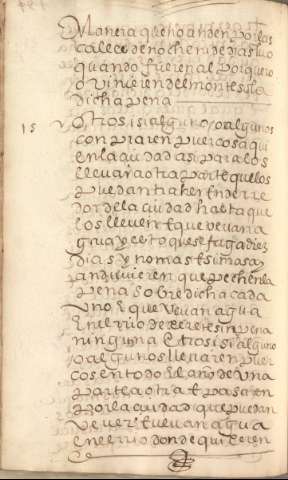 Manera que no anden por las
calles de noche ni de dias luo
quando fueren al porquero
o vinieren del monte sola
dicha pena
15 Otrosi si alguno / o algunos
conpraren puercos aqui
en la ciudad asi para los
llevar a otra parte que llos
puedan traher en derre
dor de la ciudad hasta que
los lleven E que vevan a
gua y esto que se faga diez
dias y no mas E si mas a
anduvieren que pechen la
pena sobre dicha cada
uno E que vevan agua
en el rrio de sin pena
ninguna E trosi si alguno
o algunos llevaren puer
cos en todo el año de una
parte a otra E pasaren
por la ciudad que puedan
vever E vevan agua
en el rrio donde quisieren